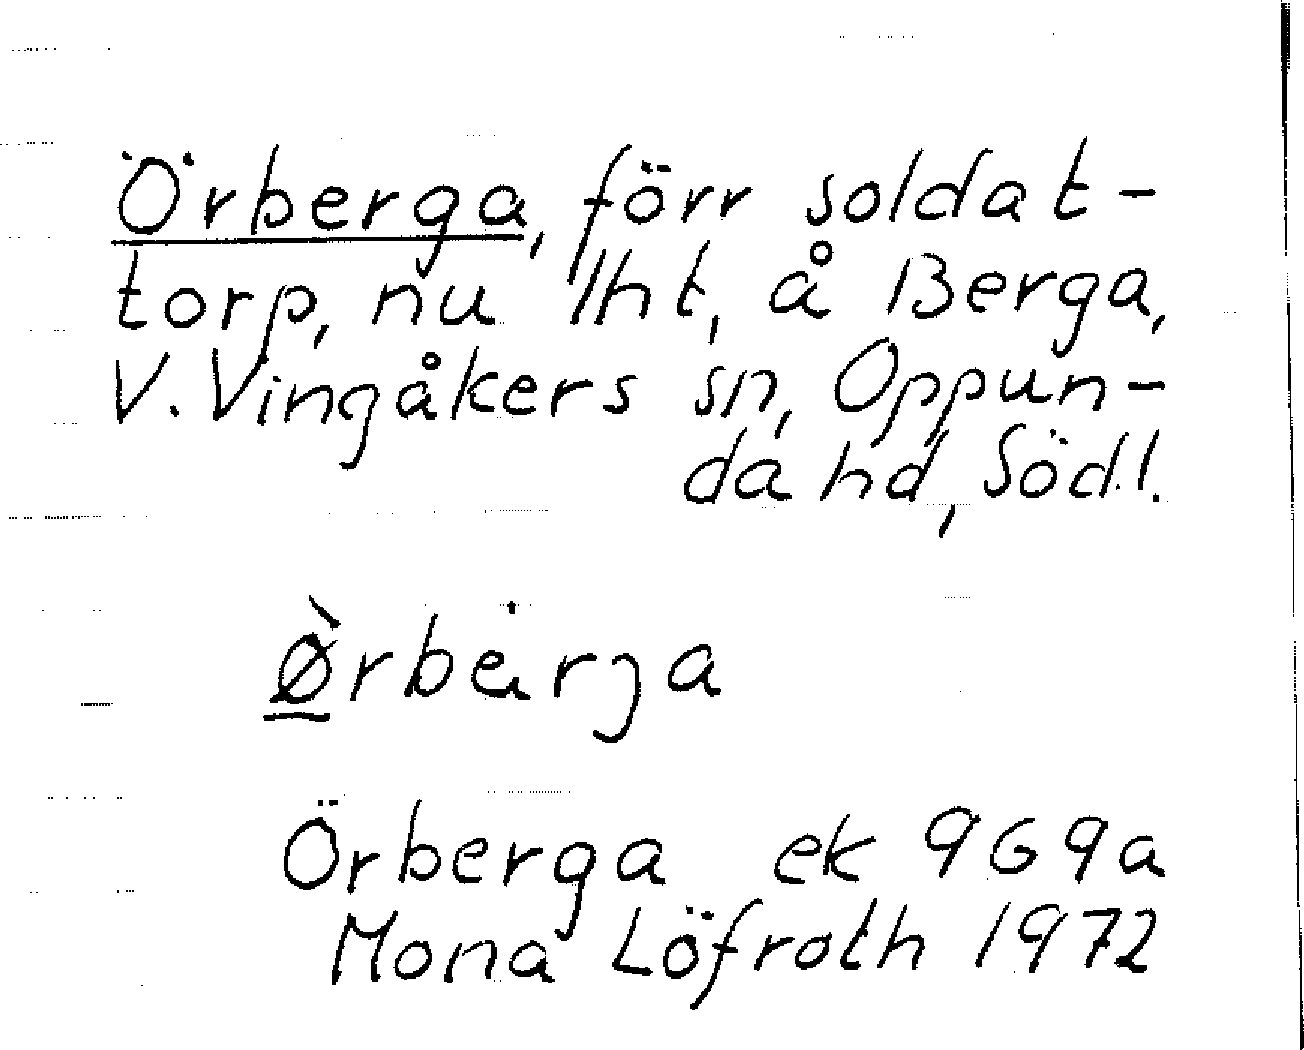 Örberga, förr soldat-
torp, nu lht, å Berga,
V. Vingåkers sn, Oppun-
da hd, Södl.
Ø̀rbärja
Örberga ek 969a
Mona Löfroth 1972